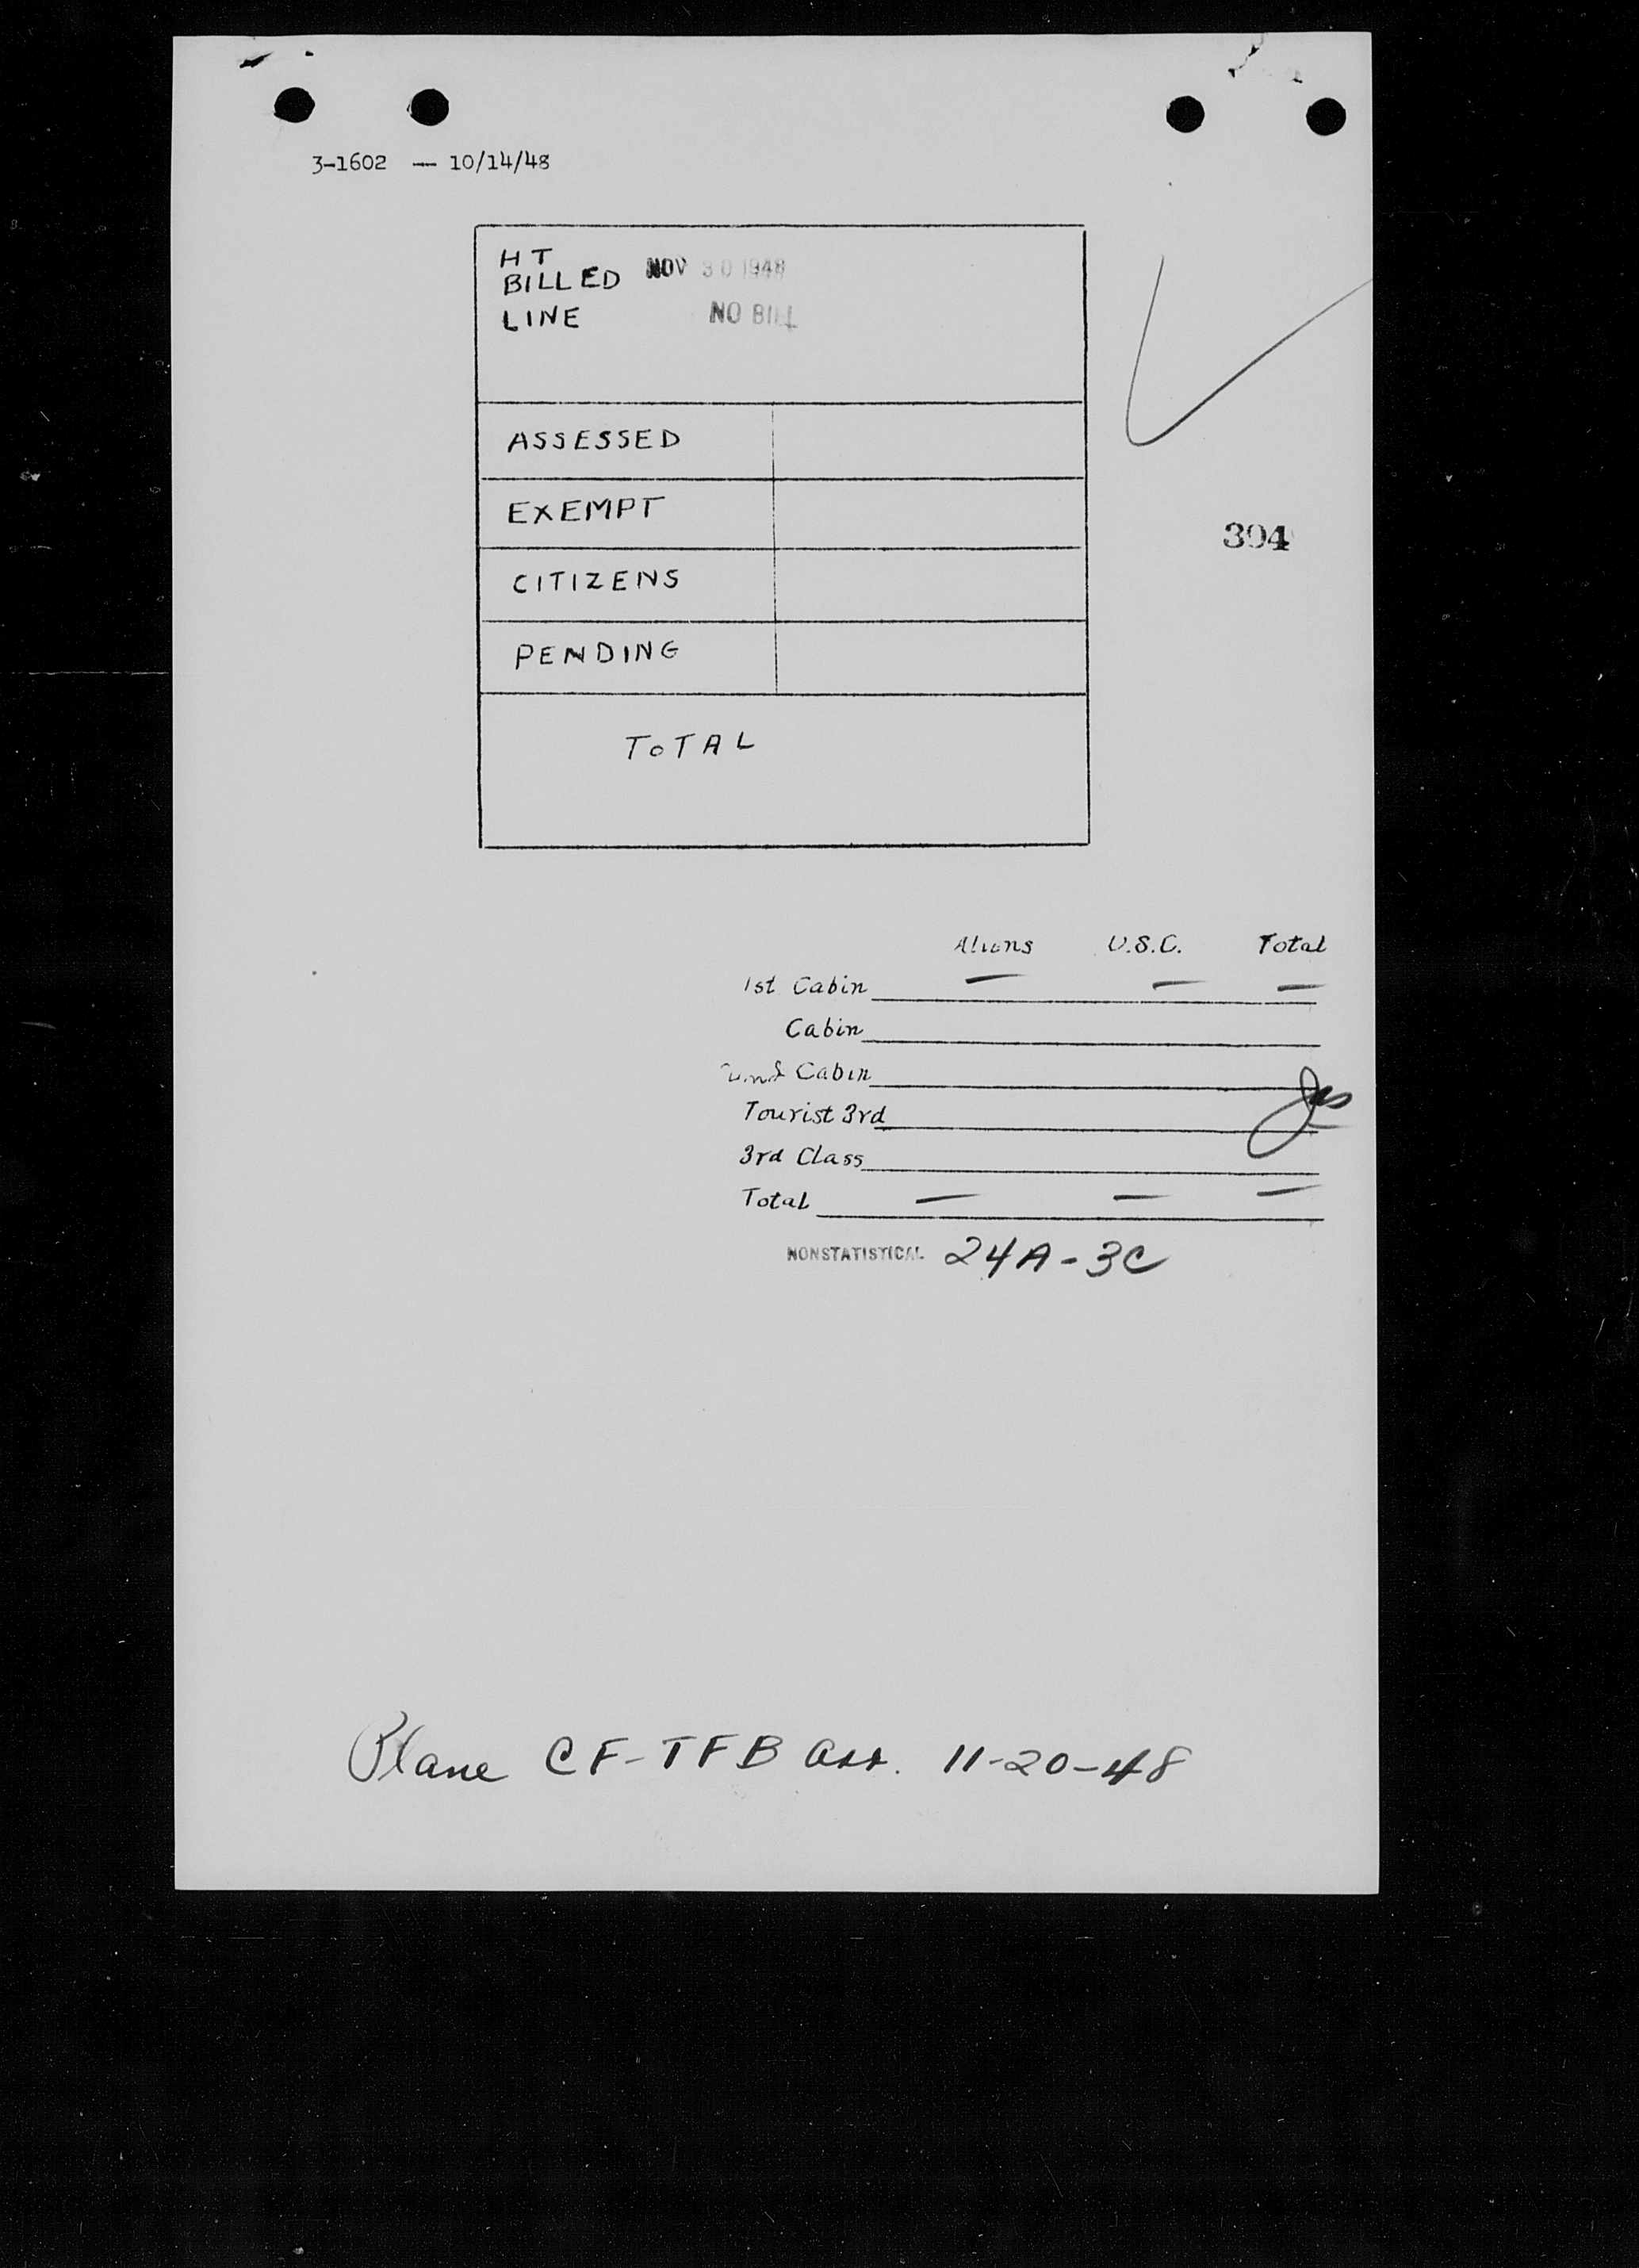 3-1602 — 10/14/48
HT
BILLED NOV 30 1948
LINE NO BILL
ASSESSED
EXEMPT
394
CITIZENS
PENDING
TOTAL
Aliens U.S.C. Total
1st Cabin — — —
Cabin
Cabin
Tourist 3rd
3rd Class
Total — — —
NONSTATISTICAL 24A-3C
Plane CF-TFB arr. 11-20-48